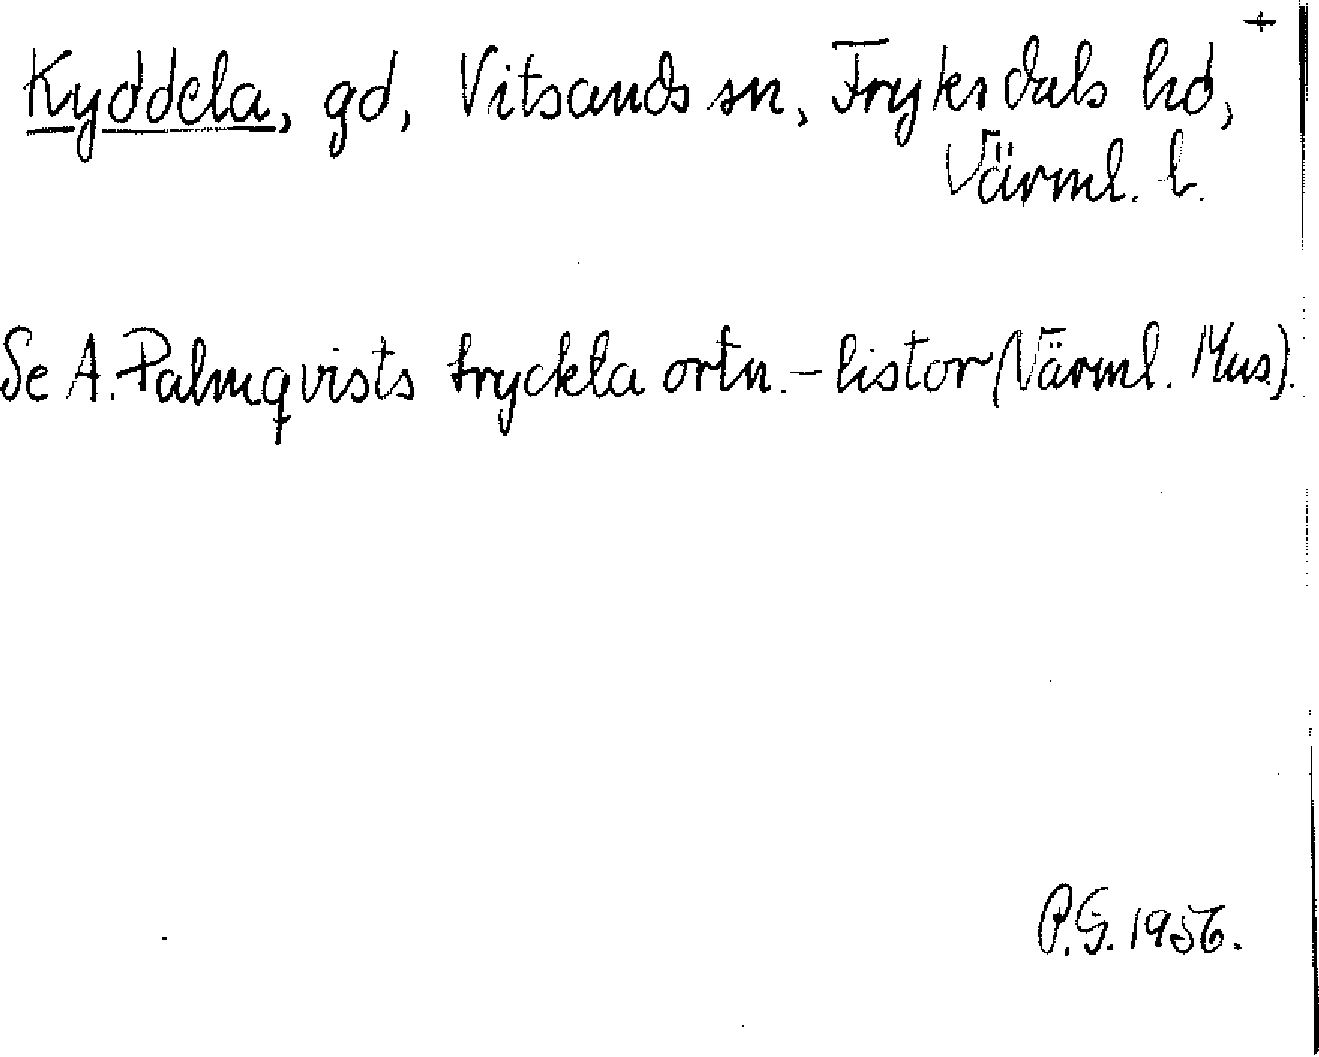 +
Kyddela, gd, Vitsands sn, Fryksdals hd,
Värml. l.
Se A. Palmqvists tryckta ortn.-listor (Värml. Mus.).
P.G. 1956.